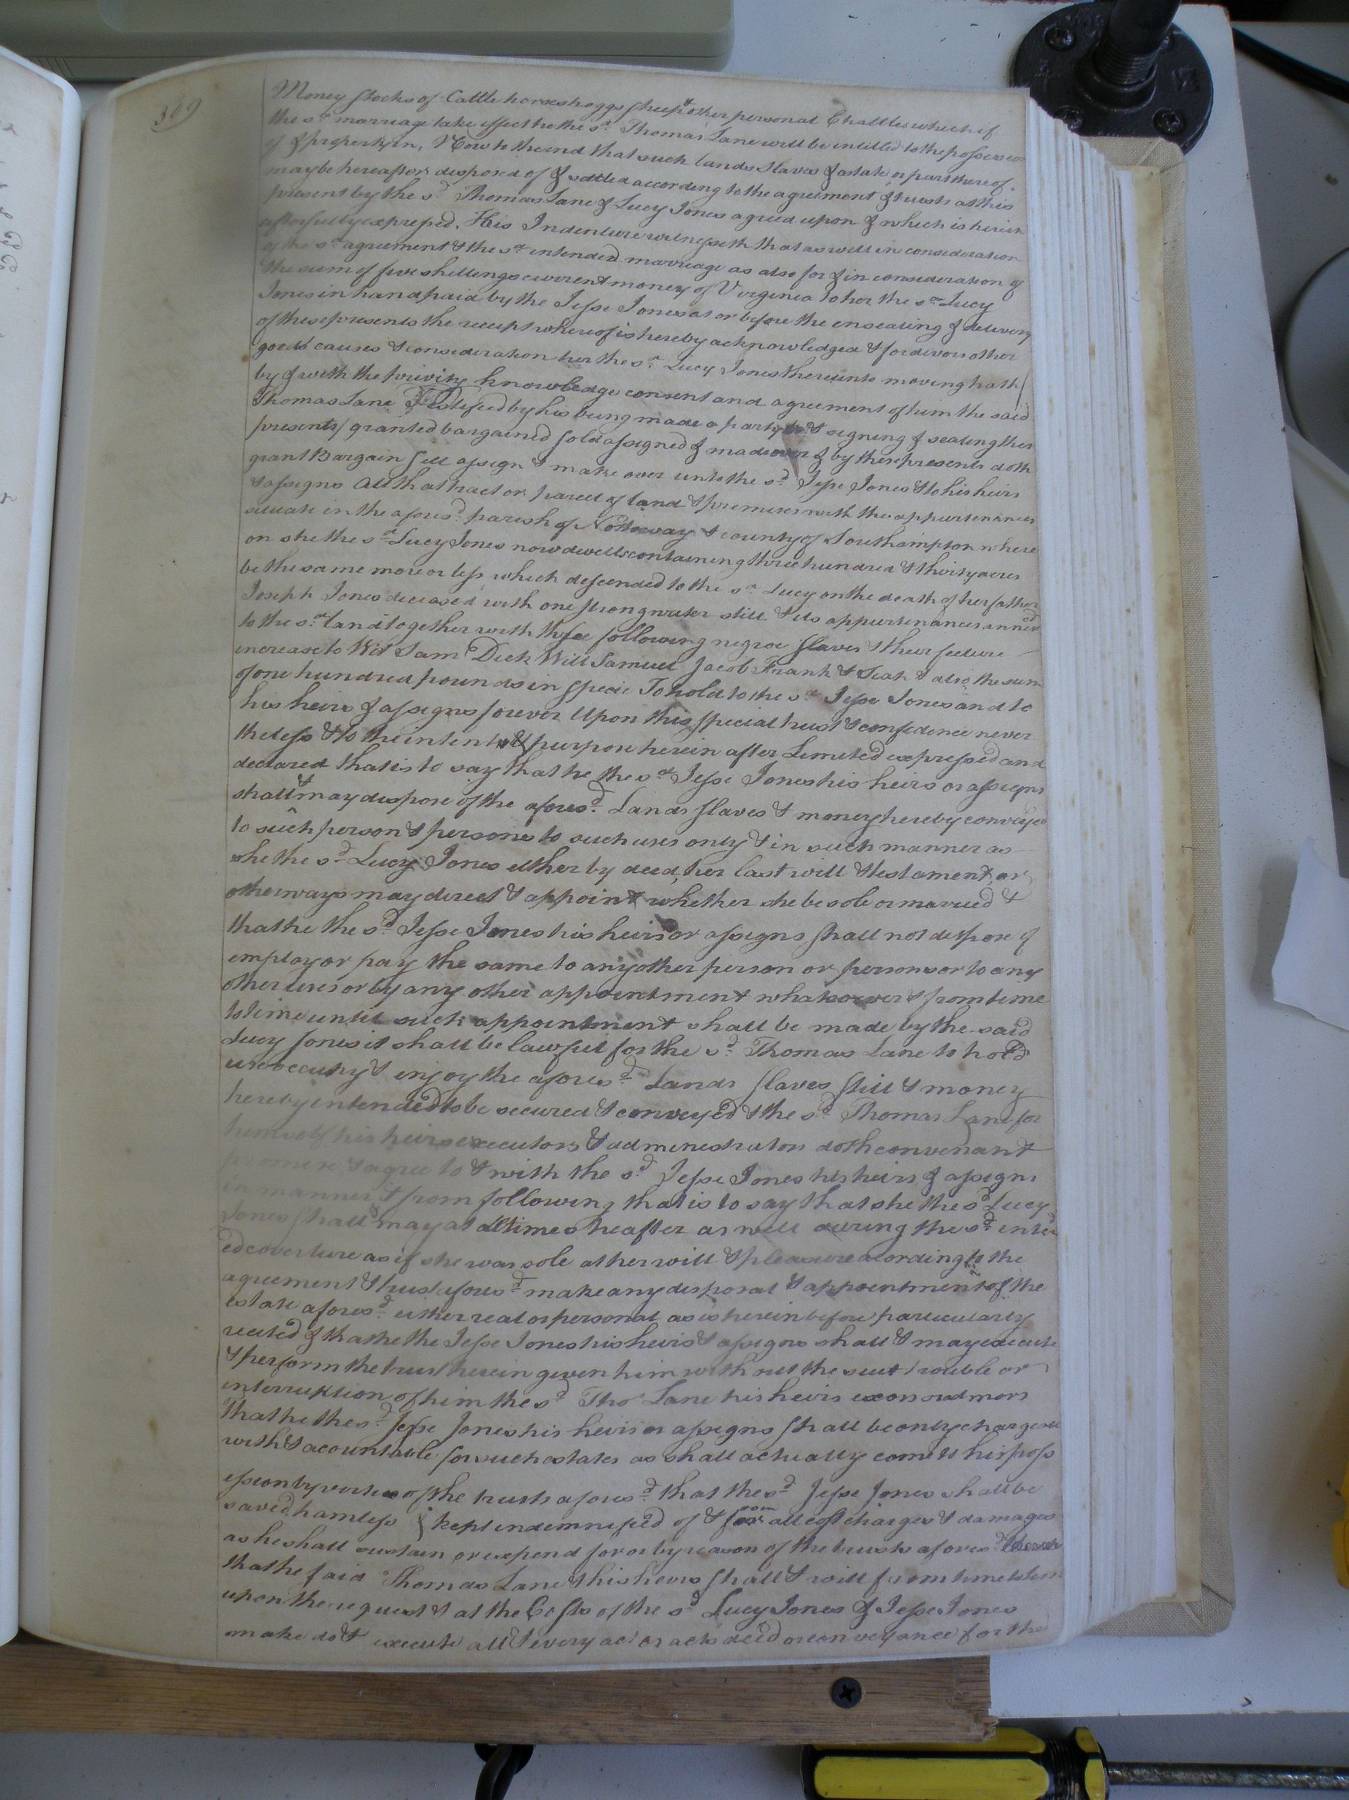 309
Money stocks of Cattle horses hoggs sheep & other personal Chattles which if
the sd marriage take effect he the sd Thomas Lane will be intitled to the possession
of & property in, Now to the end that such lands slaves & estate or part thereof
may be hereafter disposed of & settled according to the agreement & trusts at this
present by the sd Thomas Lane & Lucy Jones agreed upon & which is herein
after fully expressed. This Indenture witnesseth that as well in consideration
of the sd agreement & the sd intended marriage as also for & in consideration of
the sum of five shillings current money of Virginia to her the sd Lucy
Jones in hand paid by the Jesse Jones at or before the ensealing & delivery
of these presents the receipt whereof is hereby acknowledged & for divers other
good causes & consideration her the sd Lucy Jones thereunto moving hath
by & with the privity knowledge consent and agreement of him the said
Thomas Lane Testifeed by his being made a party to & signing & sealing these
presents/ granted bargained sold assigned & made over & by these presents doth
grant Bargain sell assign & make over unto the sd Jesse Jones & to his heirs
& assigns All that tract or parcel of land & premises with the appurtenances
situate in the afores.d parish of Nottoway & county of Southampton where
on she the sd Lucy Jones now dwells containing three hundred & thirty acres
be the same more or less which descended to the sd Lucy on the death of her father
Joseph Jones deceased with one strong water still & its appurtenances annex'd
to the sd land together with these following negroe slaves & their future
increase to Wit Sam Dick Will Samuel Jacob Frank & & also the sum
of one hundred pounds in specie To hold to the sd Jesse Jones and to
his heirs & assigns forever Upon this special trust & confidence never
theless & to the intent & purpose herein after Limited expressed and
declared that is to say that he the sd Jesse Jones his heirs or assigns
shall & may dispose of the afores.d Lands slaves & money hereby conveyed
to such person & persons to such uses only & in such manner as
she the sd Lucy Jones either by deed, her last will & testament, or
otherways may direct & appoint whether she be sole or married &
that he the sd Jesse Jones his heirs or assigns shall not dispose of
employ or pay the same to any other person or persons or to any
other uses or by any other appointment whatsoever & from time
to time until such appointment shall be made by the said
Lucy Jones it shall be lawful for the sd Thomas Lane to hold
use occupy & enjoy the afores.d Lands slaves still & money
hereby intended to be secured & conveyed & the sd Thomas Lane for
himself his heirs executors & administrators doth convenant
promise & agree to & with the sd Jesse Jones his heirs & assigns
in manner & from following that is to say that she the sd Lucy
Jones shall & may at all times heafter as well during the sd intend
ed coverture as if she was sole at her will & pleasure acording to the
agreement & trust afores.d make any disposal & appointment of the
estate afores.d either real or personal as is herein before particularly
recited & that he the Jesse Jones his heirs & assigns shall & may execute
& perform the trust herein given him without the suit trouble or
interruption of him the sd Tho.s Lane his heirs
that he the sd Jesse Jones his heirs or assigns shall be only chargeable
with & acountable for such estates as shall actually come to his poss
ession by vertue of the trusts afores.d that the sd Jesse Jones shall be
saved hamless & kept indemnified of & from all cost charges & damages
as he shall sustain or expend for or by reason of the trusts afores.d
that he said Thomas Lane & his heirs shall & will from time to time
upon the request & at the Costs of the sd Lucy Jones & Jesse Jones
make do & execute all & every act or acts deed or conveyance for the